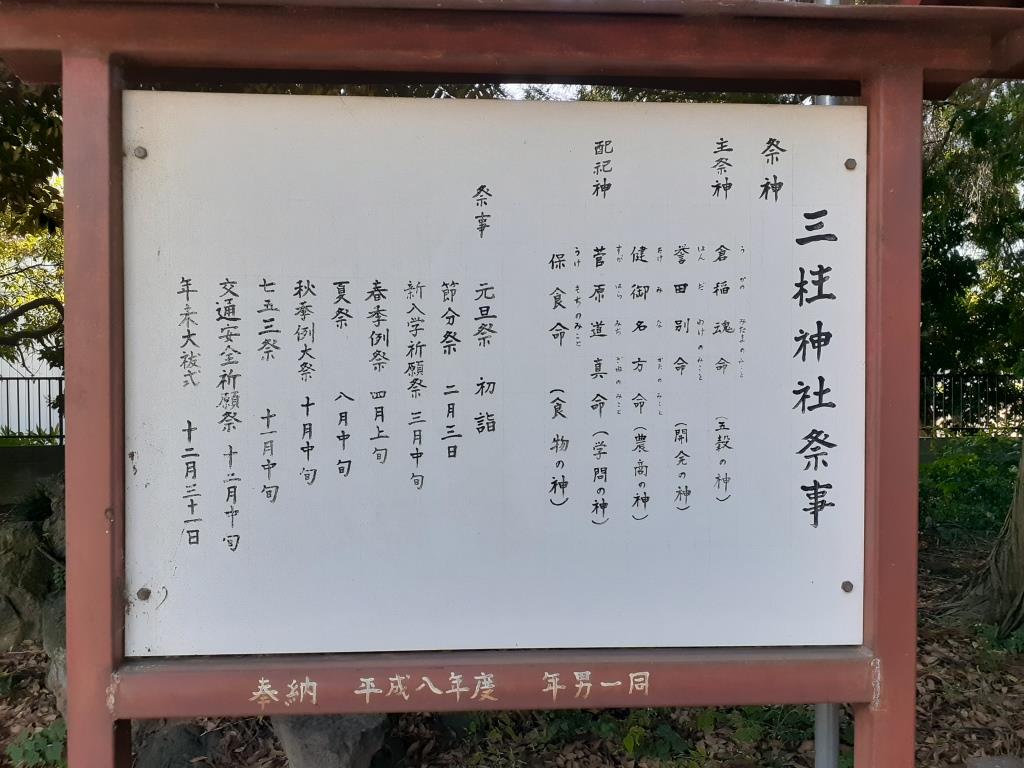 三柱神社祭事
祭神
主祭神
倉稲魂命 (五穀の神)
誉田別命 (開発の神)
健御名方命 (農商の神)
配祀神
菅原道真命 (学問の神)
保食命 (食物の神)
祭事
元旦祭 初詣
節分祭 二月三日
新入学祈願祭 三月中旬
春季例祭 四月上旬
夏祭 八月中旬
秋季例大祭 十月中旬
七五三祭 十一月中旬
交通安全祈願祭 十二月中旬
年末大祓式 十二月三十一日
奉納 平成八年度 年男一同